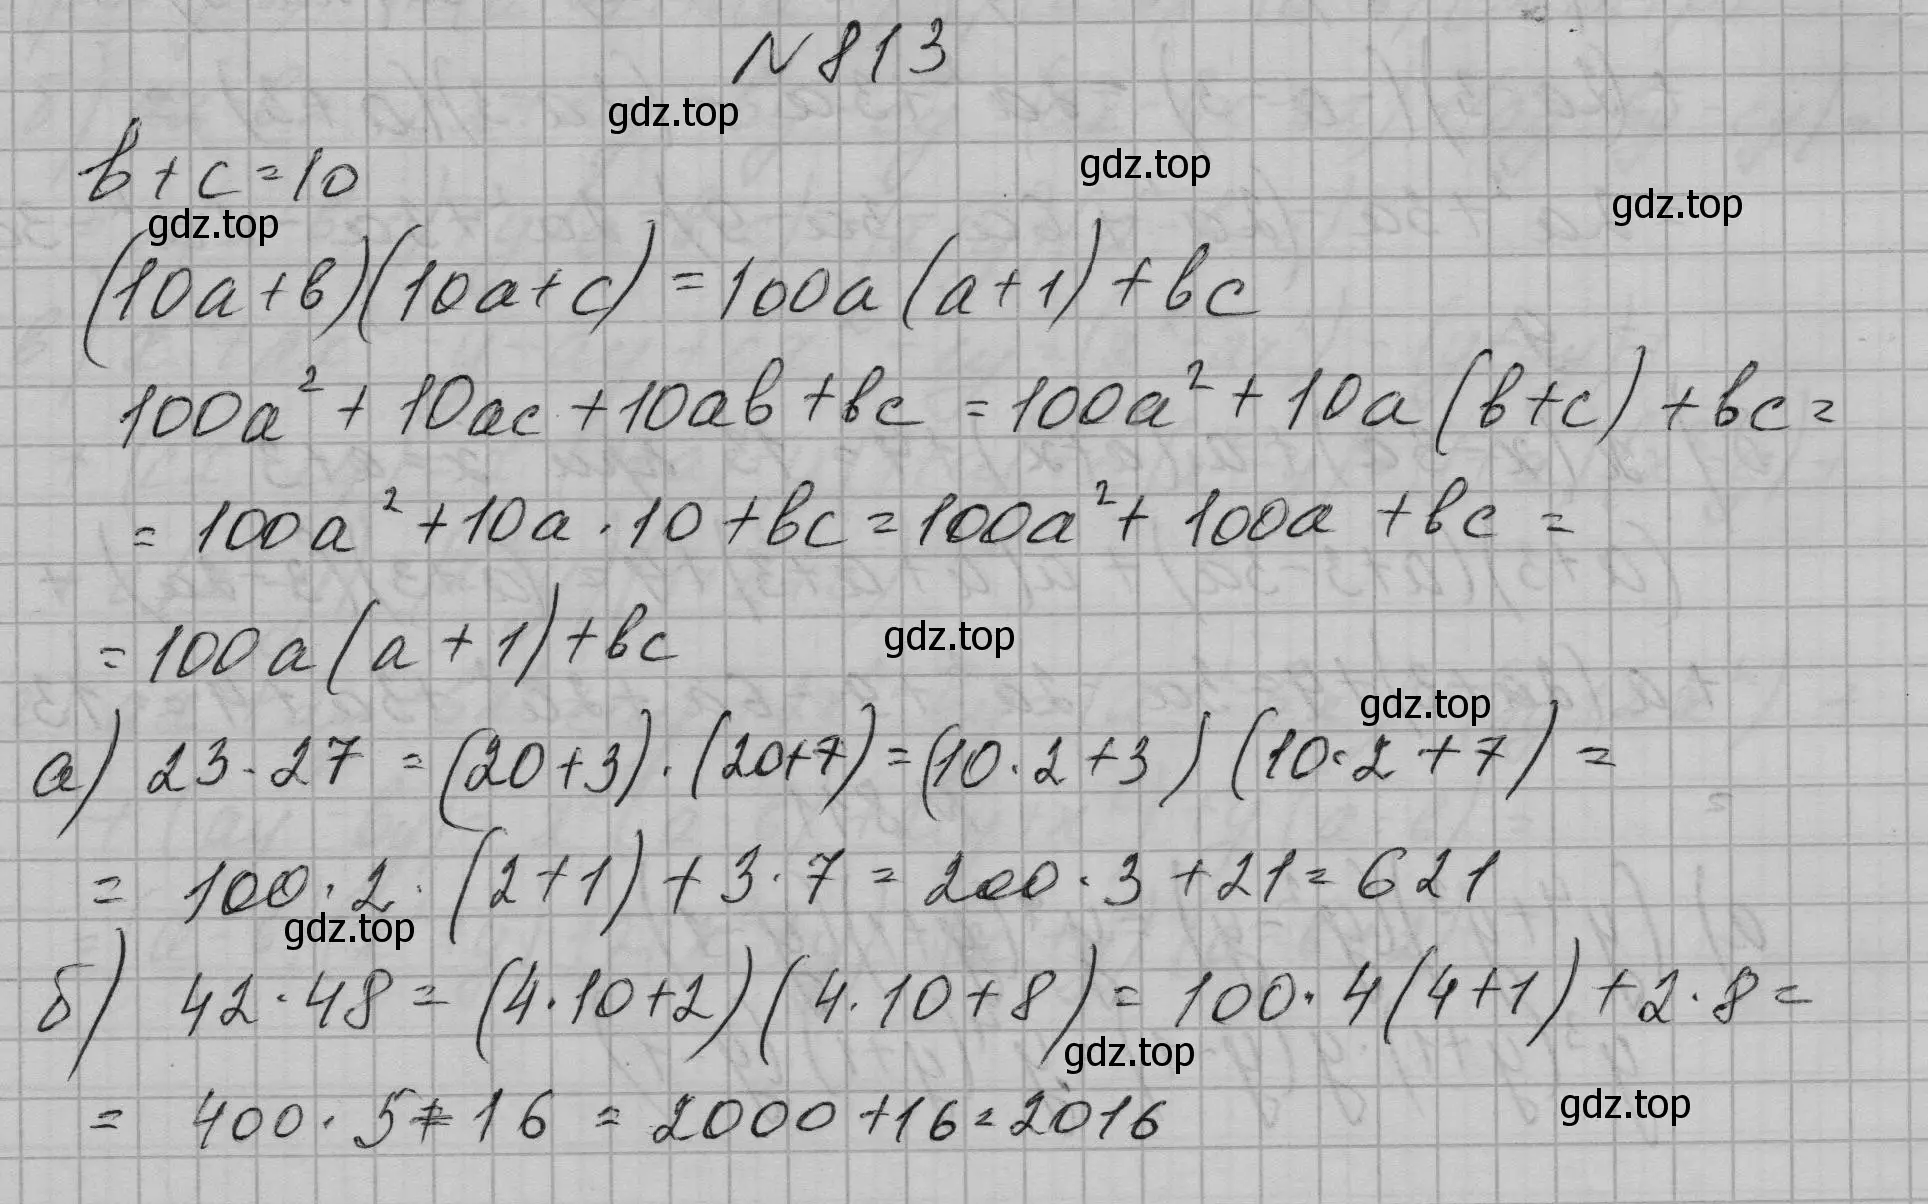 N 813
gdz.top
b + c = 10
gdz.top
gdz.top
gdz.top
(10a + b)(10a + c) = 100a (a + 1) + bc
100a² + 10ac + 10ab + bc = 100a² + 10a (b + c) + bc =
= 100a² + 10a · 10 + bc = 100a² + 100a + bc =
= 100a (a + 1) + bc
gdz.top
gdz.top
а) 23 · 27 = (20 + 3) · (20 + 7) = (10 · 2 + 3) (10 · 2 + 7) =
= 100 · 2 · (2 + 1) + 3 · 7 = 200 · 3 + 21 = 621
gdz.top
б) 42 · 48 = (4 · 10 + 2) (4 · 10 + 8) = 100 · 4 (4 + 1) + 2 · 8 =
gdz.top
= 400 · 5 + 16 = 2000 + 16 = 2016
gdz.top